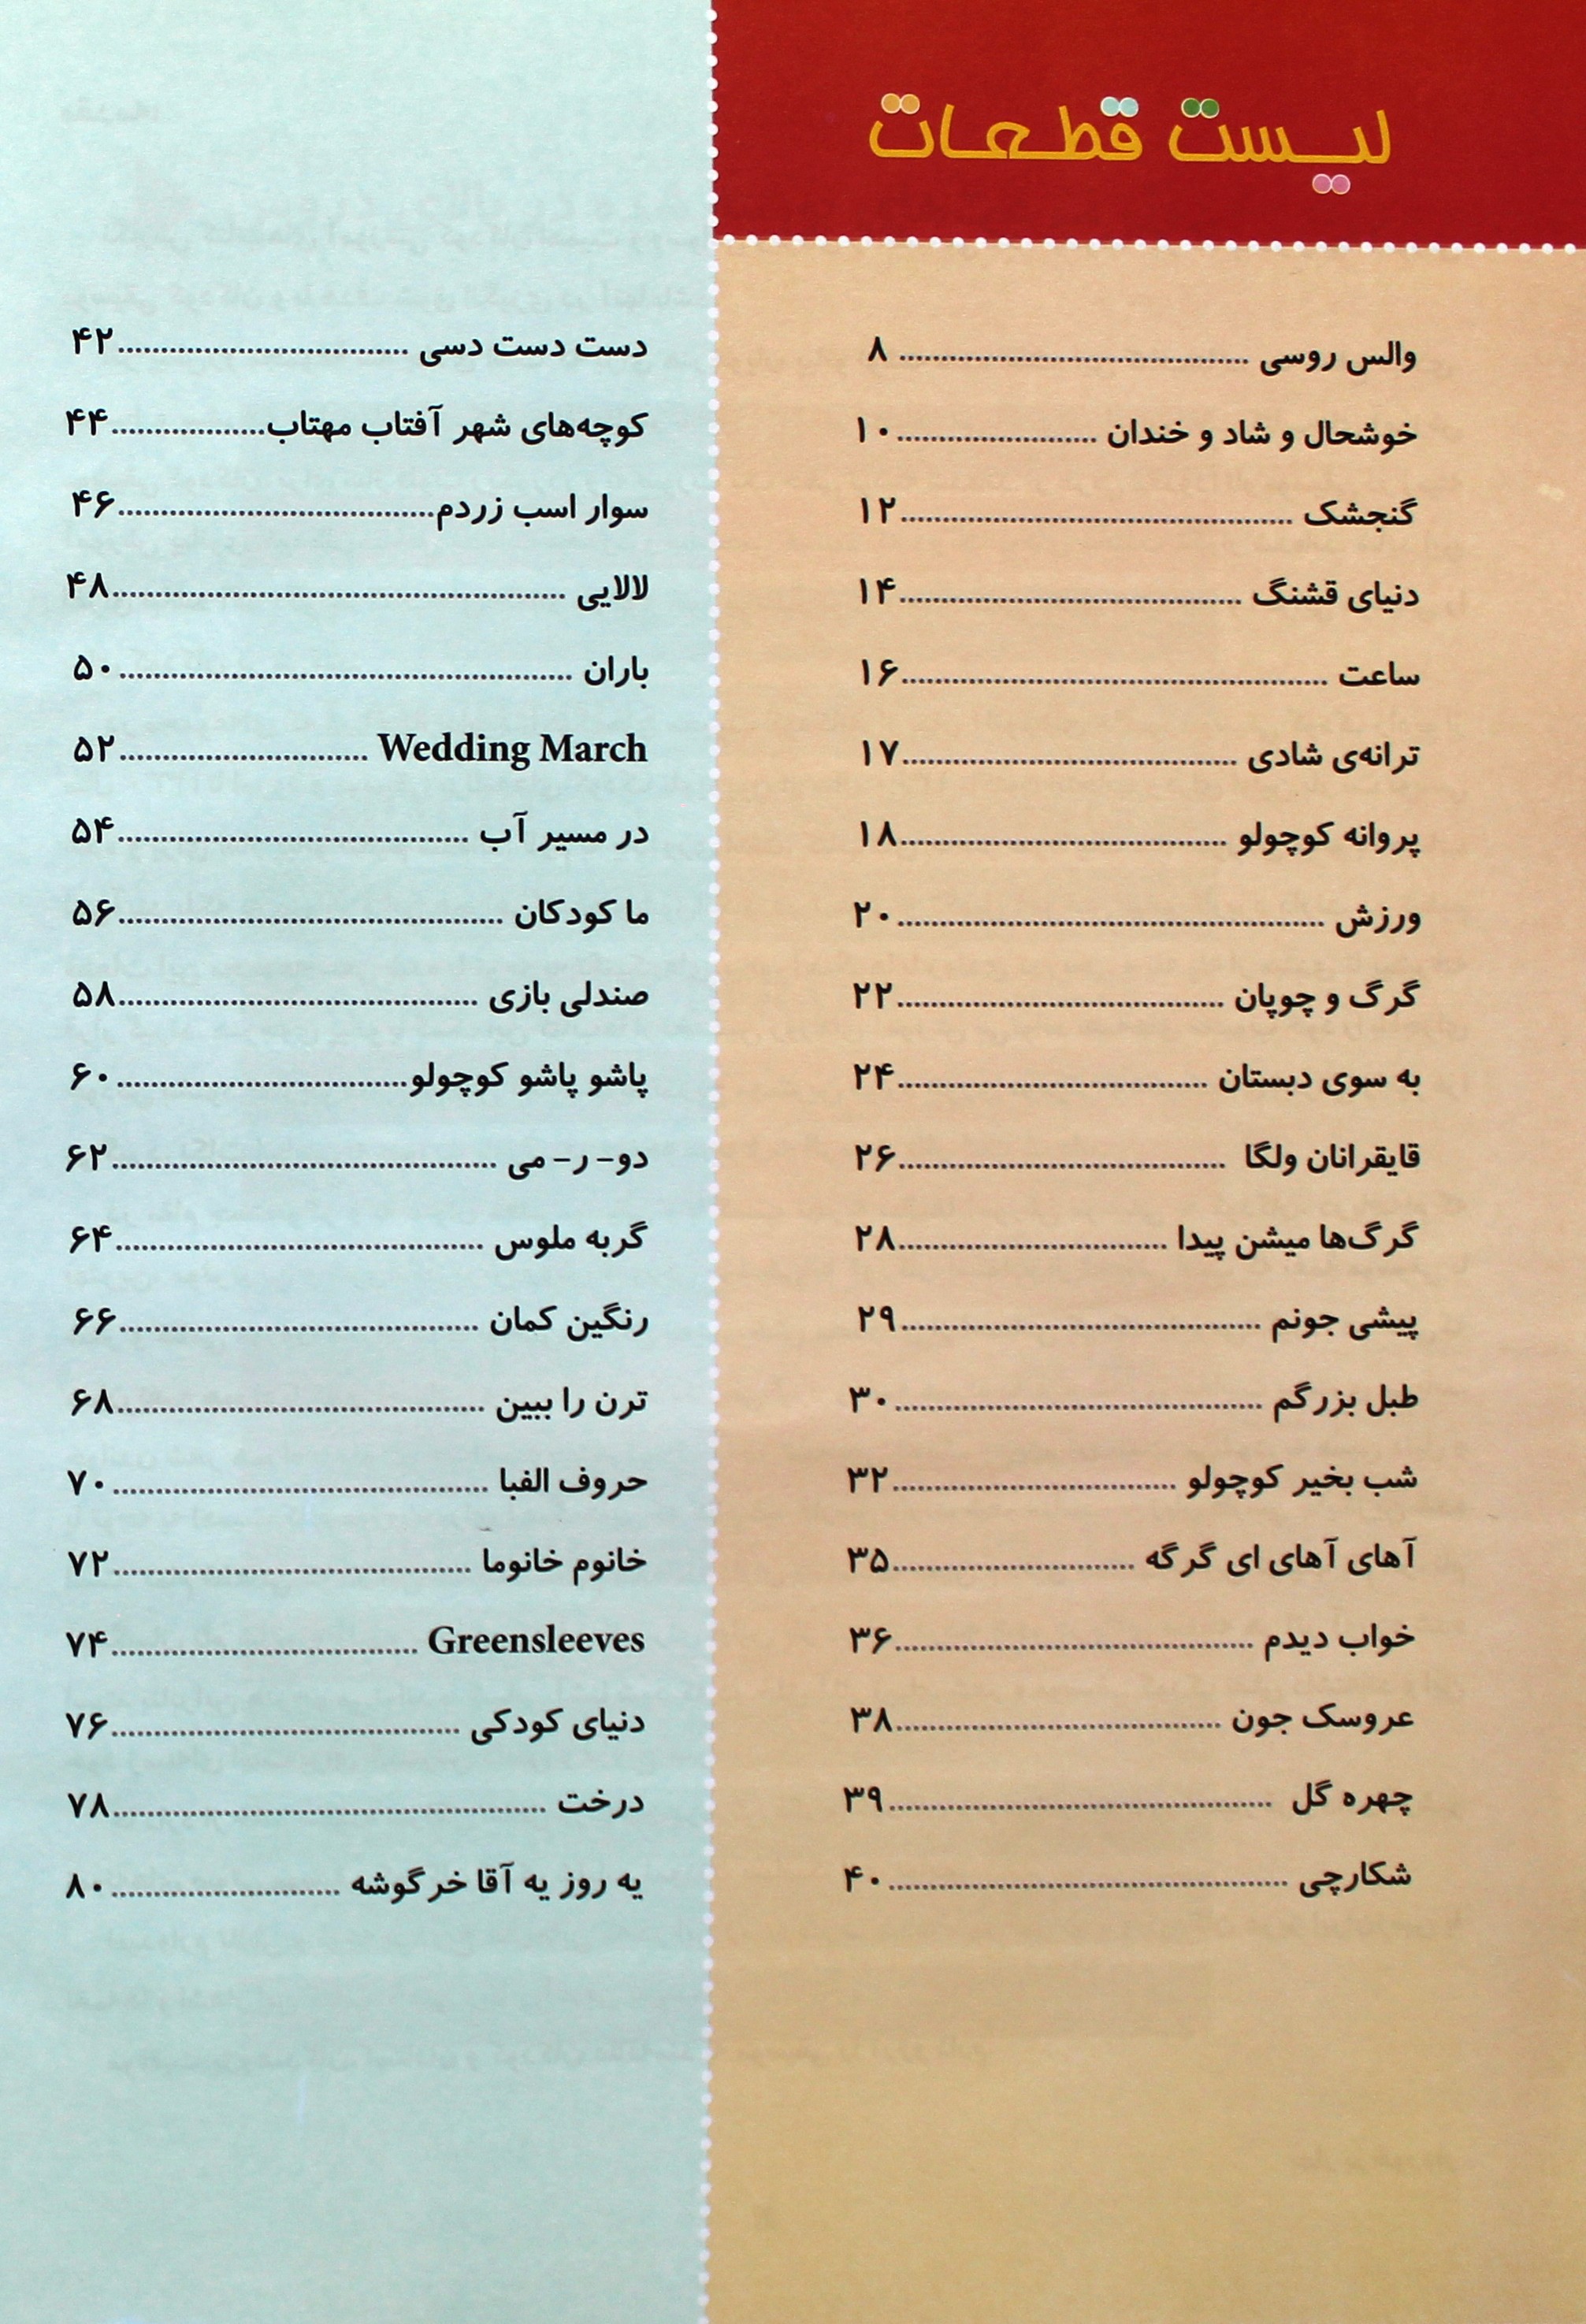 لیست قطعات
والس روسی ........................................ ۸
خوشحال و شاد و خندان ........................ ۱۰
گنجشک ..............................................۱۲
دنیای قشنگ ........................................۱۴
ساعت ..................................................۱۶
ترانه‌ی شادی .......................................۱۷
پروانه کوچولو ......................................۱۸
ورزش ..................................................۲۰
گرگ و چوپان ......................................۲۲
به سوی دبستان ....................................۲۴
قایقرانان ولگا ......................................۲۶
گرگ‌ها میشن پیدا ...............................۲۸
پیشی جونم ..........................................۲۹
طبل بزرگم ...........................................۳۰
شب بخیر کوچولو .................................۳۲
آهای آهای ای گرگه ............................۳۵
خواب دیدم ..........................................۳۶
عروسک جون ......................................۳۸
چهره گل .............................................۳۹
شکارچی ...............................................۴۰
دست دست دسی ..................................۴۲
کوچه‌های شهر آفتاب مهتاب..................۴۴
سوار اسب زردم.....................................۴۶
لالایی .....................................................۴۸
باران ..................................................... ۵۰
Wedding March .............................۵۲
در مسیر آب .........................................۵۴
ما کودکان .............................................۵۶
صندلی بازی ..........................................۵۸
پاشو پاشو کوچولو.................................. ۶۰
دو- ر- می .............................................۶۲
گربه ملوس ...........................................۶۴
رنگین کمان ..........................................۶۶
ترن را ببین ...........................................۶۸
حروف الفبا ............................................ ۷۰
خانوم خانوما ..........................................۷۲
Greensleeves ....................................۷۴
دنیای کودکی .........................................۷۶
درخت ...................................................۷۸
یه روز یه آقا خرگوشه ........................... ۸۰